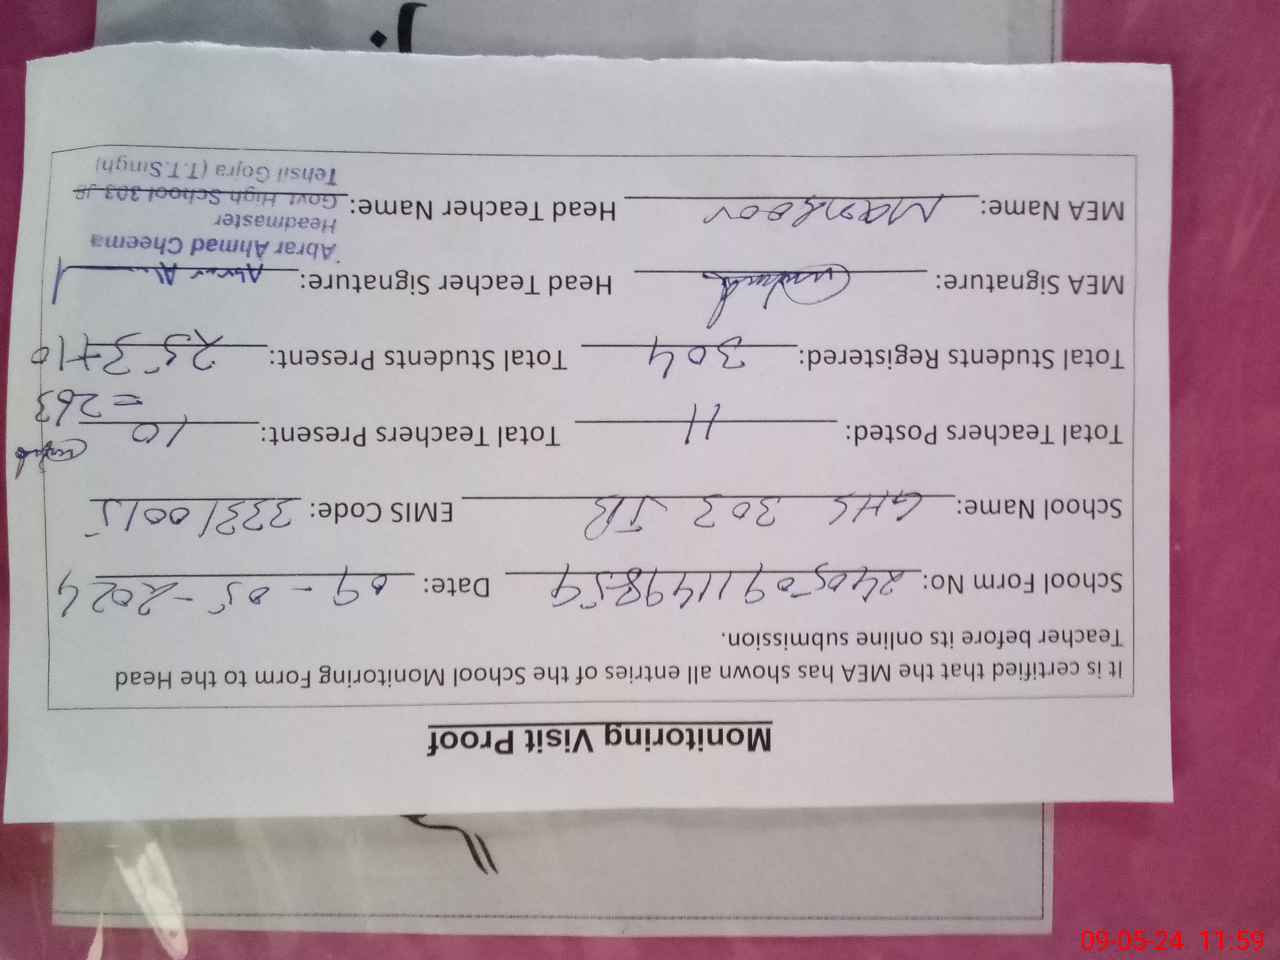 Monitoring Visit Proof
It is certified that the MEA has shown all entries of the School Monitoring Form to the Head
Teacher before its online submission.
School Form No: 24050911149859 Date: 09-05-2024
School Name: GHS 303 JB EMIS Code: 33310015
Total Teachers Posted: 11 Total Teachers Present: 10
Total Students Registered: 304 Total Students Present: 253+10
= 263
MEA Signature: Head Teacher Signature:
Abrar Ahmad Cheema
Headmaster
MEA Name: Manzoor Head Teacher Name: Govt High School 303 JB
Tehsil Gojra (T.T.Singh)
09-05-24 11:59